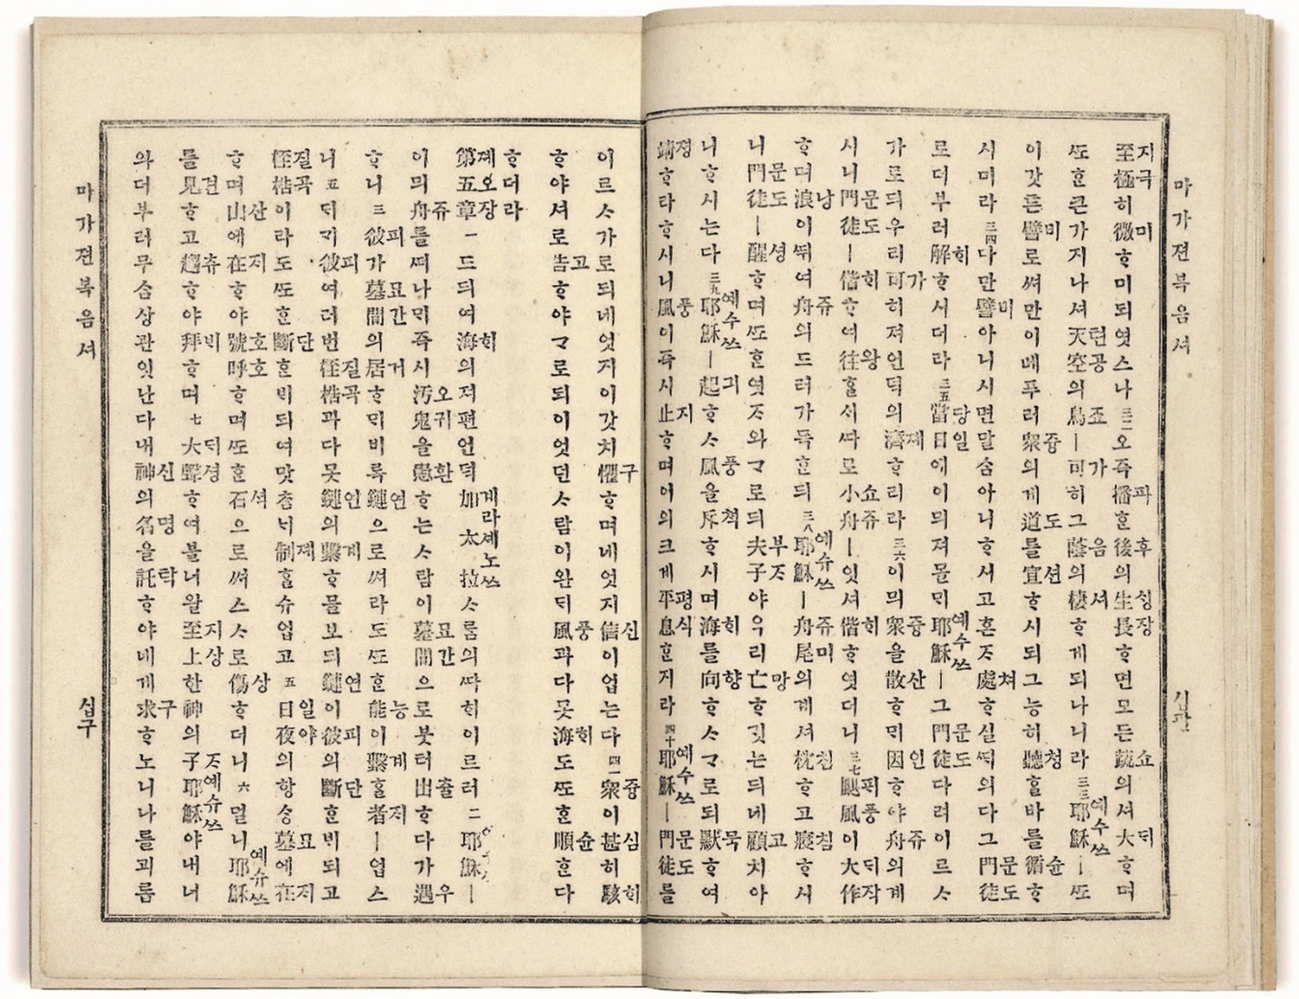 마가젼복음셔 십팔
至極히微ᄒᆞ미되엿스나三二오즉播ᄒᆞᆫ後의生長ᄒᆞ면모든蔬의셔大ᄒᆞ며
지극 미 파 후 싱쟝 쇼 ᄃᆡ
ᄯᅩᄒᆞᆫ큰가지나셔天空의鳥ㅣ可히그蔭의棲ᄒᆞ게되나니라三三耶穌ㅣᄯᅩ
텬공 죠 가 음 셔 예수쓰
이갓튼譬로ᄡᅥ만이베푸러衆의게道를宜ᄒᆞ시되그능히聽ᄒᆞᆯ바를循ᄒᆞ
미 즁 도 션 쳥 슌
시미라三四다만譬아니시면말슴아니ᄒᆞ시고혼ᄌᆞ處ᄒᆞ실ᄯᆡ의다그門徒
미 쳐 문도
로더부러解ᄒᆞ시더라三五當日에이의져믈ᄆᆡ耶穌ㅣ그門徒다려이르ᄉᆞ
히 당일 예수쓰 문도
가로되우리可히져언덕의濟ᄒᆞ리라三六이의衆을散ᄒᆞᄆᆡ因ᄒᆞ야舟의계
가 졔 즁 산 인 쥬
시니門徒ㅣ偕ᄒᆞ여往ᄒᆞᆯᄉᆡᄯᅡ로小舟ㅣ잇셔偕ᄒᆞ엿더니三七颶風이大作
문도 ᄒᆡ 왕 쇼쥬 ᄒᆡ 풍 ᄃᆡ작
ᄒᆞ며浪이ᄯᅱ여舟의드러가득ᄒᆞᆫ되三八耶穌ㅣ舟尾의계셔枕ᄒᆞ고寢ᄒᆞ시
낭 쥬 예슈쓰 쥬미 침 침
니門徒ㅣ醒ᄒᆞ며ᄯᅩᄒᆞᆫ엿ᄌᆞ와ᄀᆞ로되夫子야우리亡ᄒᆞ깃는되네顧치아
문도 셩 부ᄌᆞ 망 고
니ᄒᆞ시는다三九耶穌ㅣ起ᄒᆞᄉᆞ風을斥ᄒᆞ시며海를向ᄒᆞᄉᆞᄀᆞ로되默ᄒᆞ여
예수쓰 긔 풍 쳑 ᄒᆡ 향 묵
靖ᄒᆞ라ᄒᆞ시니風이즉시止ᄒᆞ며이의크게平息ᄒᆞᆫ지라四十耶穌ㅣ門徒를
졍 풍 지 평식 예수쓰 문도
이르ᄉᆞ가로되네엇지이갓치懼ᄒᆞ며네엇지信이업는다四一衆이甚히駭
구 신 즁 심 ᄒᆡ
ᄒᆞ야셔로告ᄒᆞ야ᄀᆞ로되이엇던ᄉᆞ람이완ᄃᆡ風과다못海도ᄯᅩᄒᆞᆫ順ᄒᆞᆫ다
고 풍 ᄒᆡ 슌
ᄒᆞ더라
第五章 一드듸여海의져편언덕加太拉ᄉᆞ룸의ᄯᅡ히이르러二耶穌ㅣ
졔오장 ᄒᆡ 게라셰노쓰
이믜舟를ᄯᅥ나ᄆᆡ즉시汚鬼을患ᄒᆞ는ᄉᆞ람이墓間으로붓터出ᄒᆞ다가遇
쥬 오귀 환 묘간 츌 우
ᄒᆞ니三彼가墓間의居ᄒᆞᄆᆡ비록鏈으로ᄡᅥ라도ᄯᅩᄒᆞᆫ能이繫ᄒᆞᆯ者ㅣ업스
피 묘간 거 연 능 계 ᄌᆞ
니四ᄃᆡᄀᆡ彼여러번桎梏과다못鏈의繫ᄒᆞ믈보되鏈이彼의斷ᄒᆞᆫᄇᆡ되고
피 질곡 연 계 연 피 단
桎梏이라도ᄯᅩᄒᆞᆫ斷ᄒᆞᆫᄇᆡ되여맛ᄎᆞᆷᄂᆡ制ᄒᆞᆯ슈업고五日夜의항상墓에在
질곡 단 졔 일야 묘 ᄌᆡ
ᄒᆞ며山에在ᄒᆞ야號呼ᄒᆞ며ᄯᅩᄒᆞᆫ石으로ᄡᅥ스ᄉᆞ로傷ᄒᆞ더니六멀니耶穌
산 ᄌᆡ 호호 셕 상 예슈쓰
를見ᄒᆞ고趨ᄒᆞ야拜ᄒᆞ며七大聲ᄒᆞ여불너왈至上한神의子耶穌야내너
견 츄 ᄇᆡ ᄃᆡ셩 지상 ᄌᆞ예슈쓰
와더부러무슴상관잇난다내神의名을託ᄒᆞ야네게求ᄒᆞ노니나를괴롬
신 명 탁 구
마가젼복음셔 십구